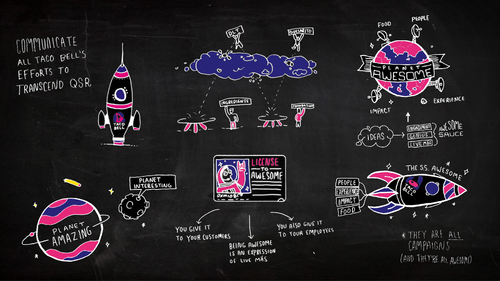 COMMUNICATE
ALL TACO BELL'S
EFFORTS TO
TRANSCEND QSR
TACO
BELL
INGREDIENTS
FOOD
PEOPLE
PLANET
AWESOME
IMPACT
EXPERIENCE
IDEAS
AWESOME
SAUCE
PLANET
INTERESTING
PLANET
AMAZING
LICENSE
TO
AWESOME
YOU GIVE IT
TO YOUR CUSTOMERS
BEING AWESOME
IS AN EXPRESSION
OF LIVE MÁS
YOU ALSO GIVE IT
TO YOUR EMPLOYEES
THE SS. AWESOME
PEOPLE
EXPERIENCE
IMPACT
FOOD
* THEY ARE ALL
CAMPAIGNS
(AND THEY'RE ALL AWESOME)